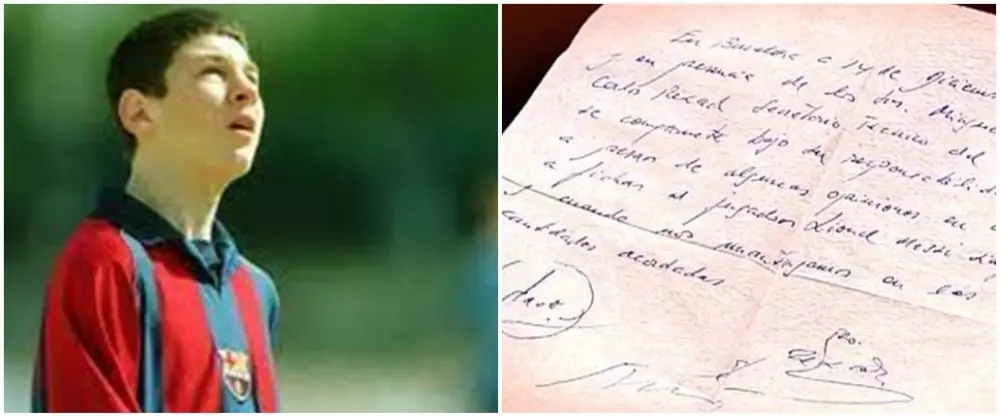 En Barcelona a 14 de Diciem
y en presencia de los Srs. Mingue
Carlos Rexach Secretario Técnico del
se compromete bajo su responsabilida
a pesar de algunas opiniones en c
a fichar al jugador Lionel Messi
y cuando nos mantengamos en las
cantidades acordadas